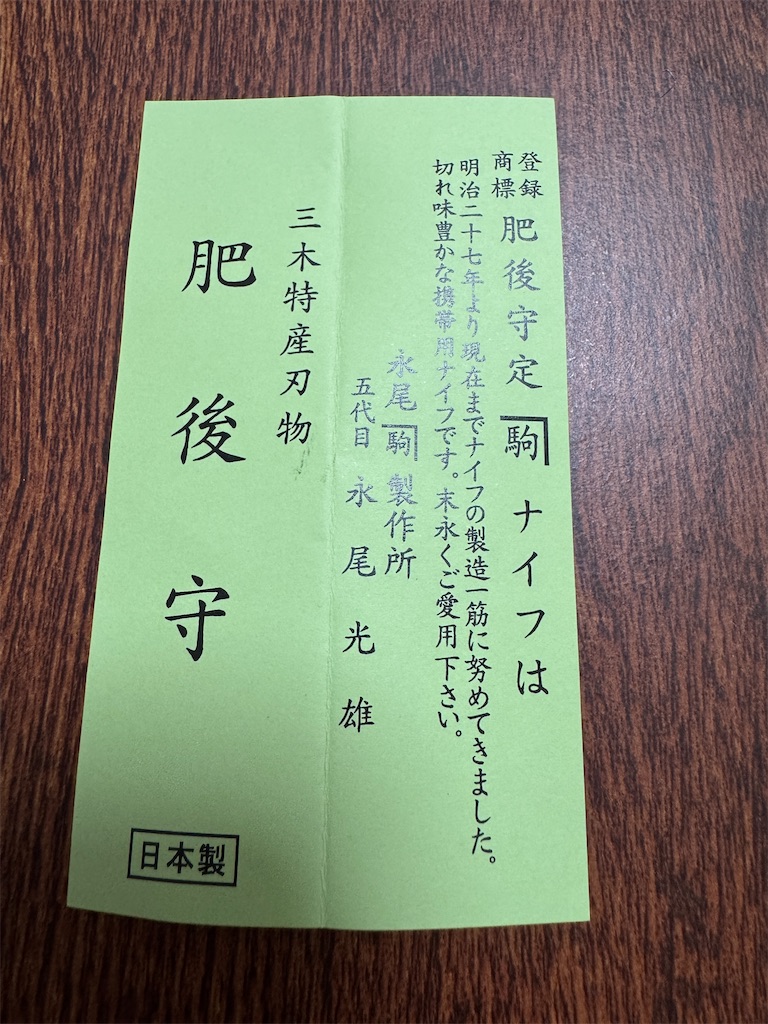 登録商標 肥後守定 駒 ナイフは
明治二十七年より現在までナイフの製造一筋に努めてきました。
切れ味豊かな携帯用ナイフです。末永くご愛用下さい。
永尾 駒 製作所
五代目 永尾光雄
三木特産刃物
肥後守
日本製